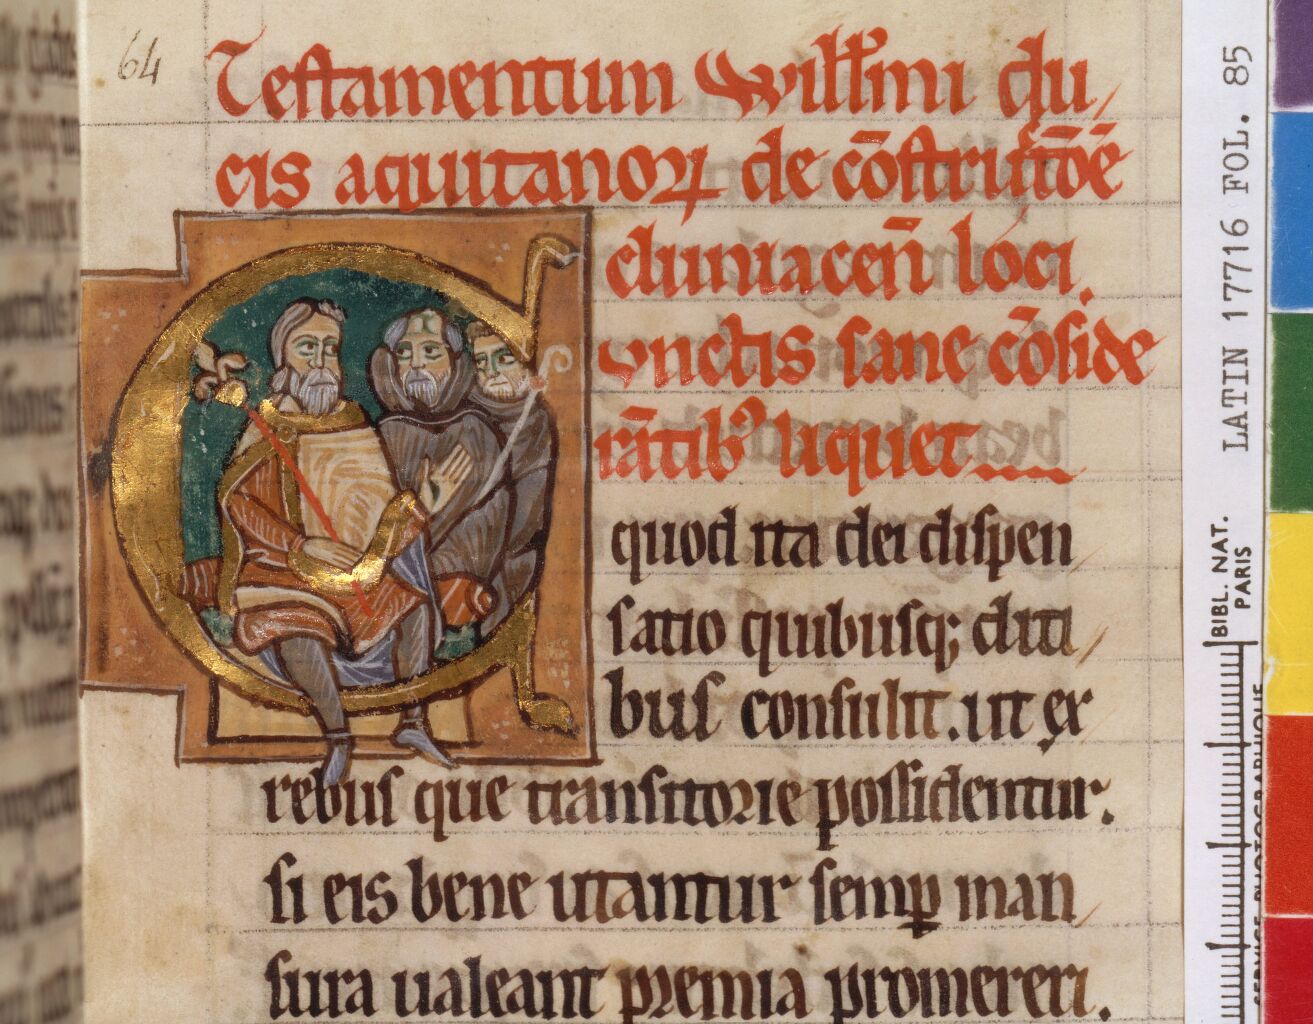 64
Testamentum Willm̄i du/
cis aquitanoꝝ de cōstructōē
cluniacen̄ loci.
unctis sane cōside
rātibꝰ liquet
quod ita dei dispen
satio quibusq; diti/
bus consulit. ut ex/
rebus que transitorie possidentur.
si eis bene utantur semꝑ man/
sura ualeant premia promereri.
LATIN 17716 FOL. 85
BIBL. NAT.
PARIS
SERVICE PHOTOGRAPHIQUE